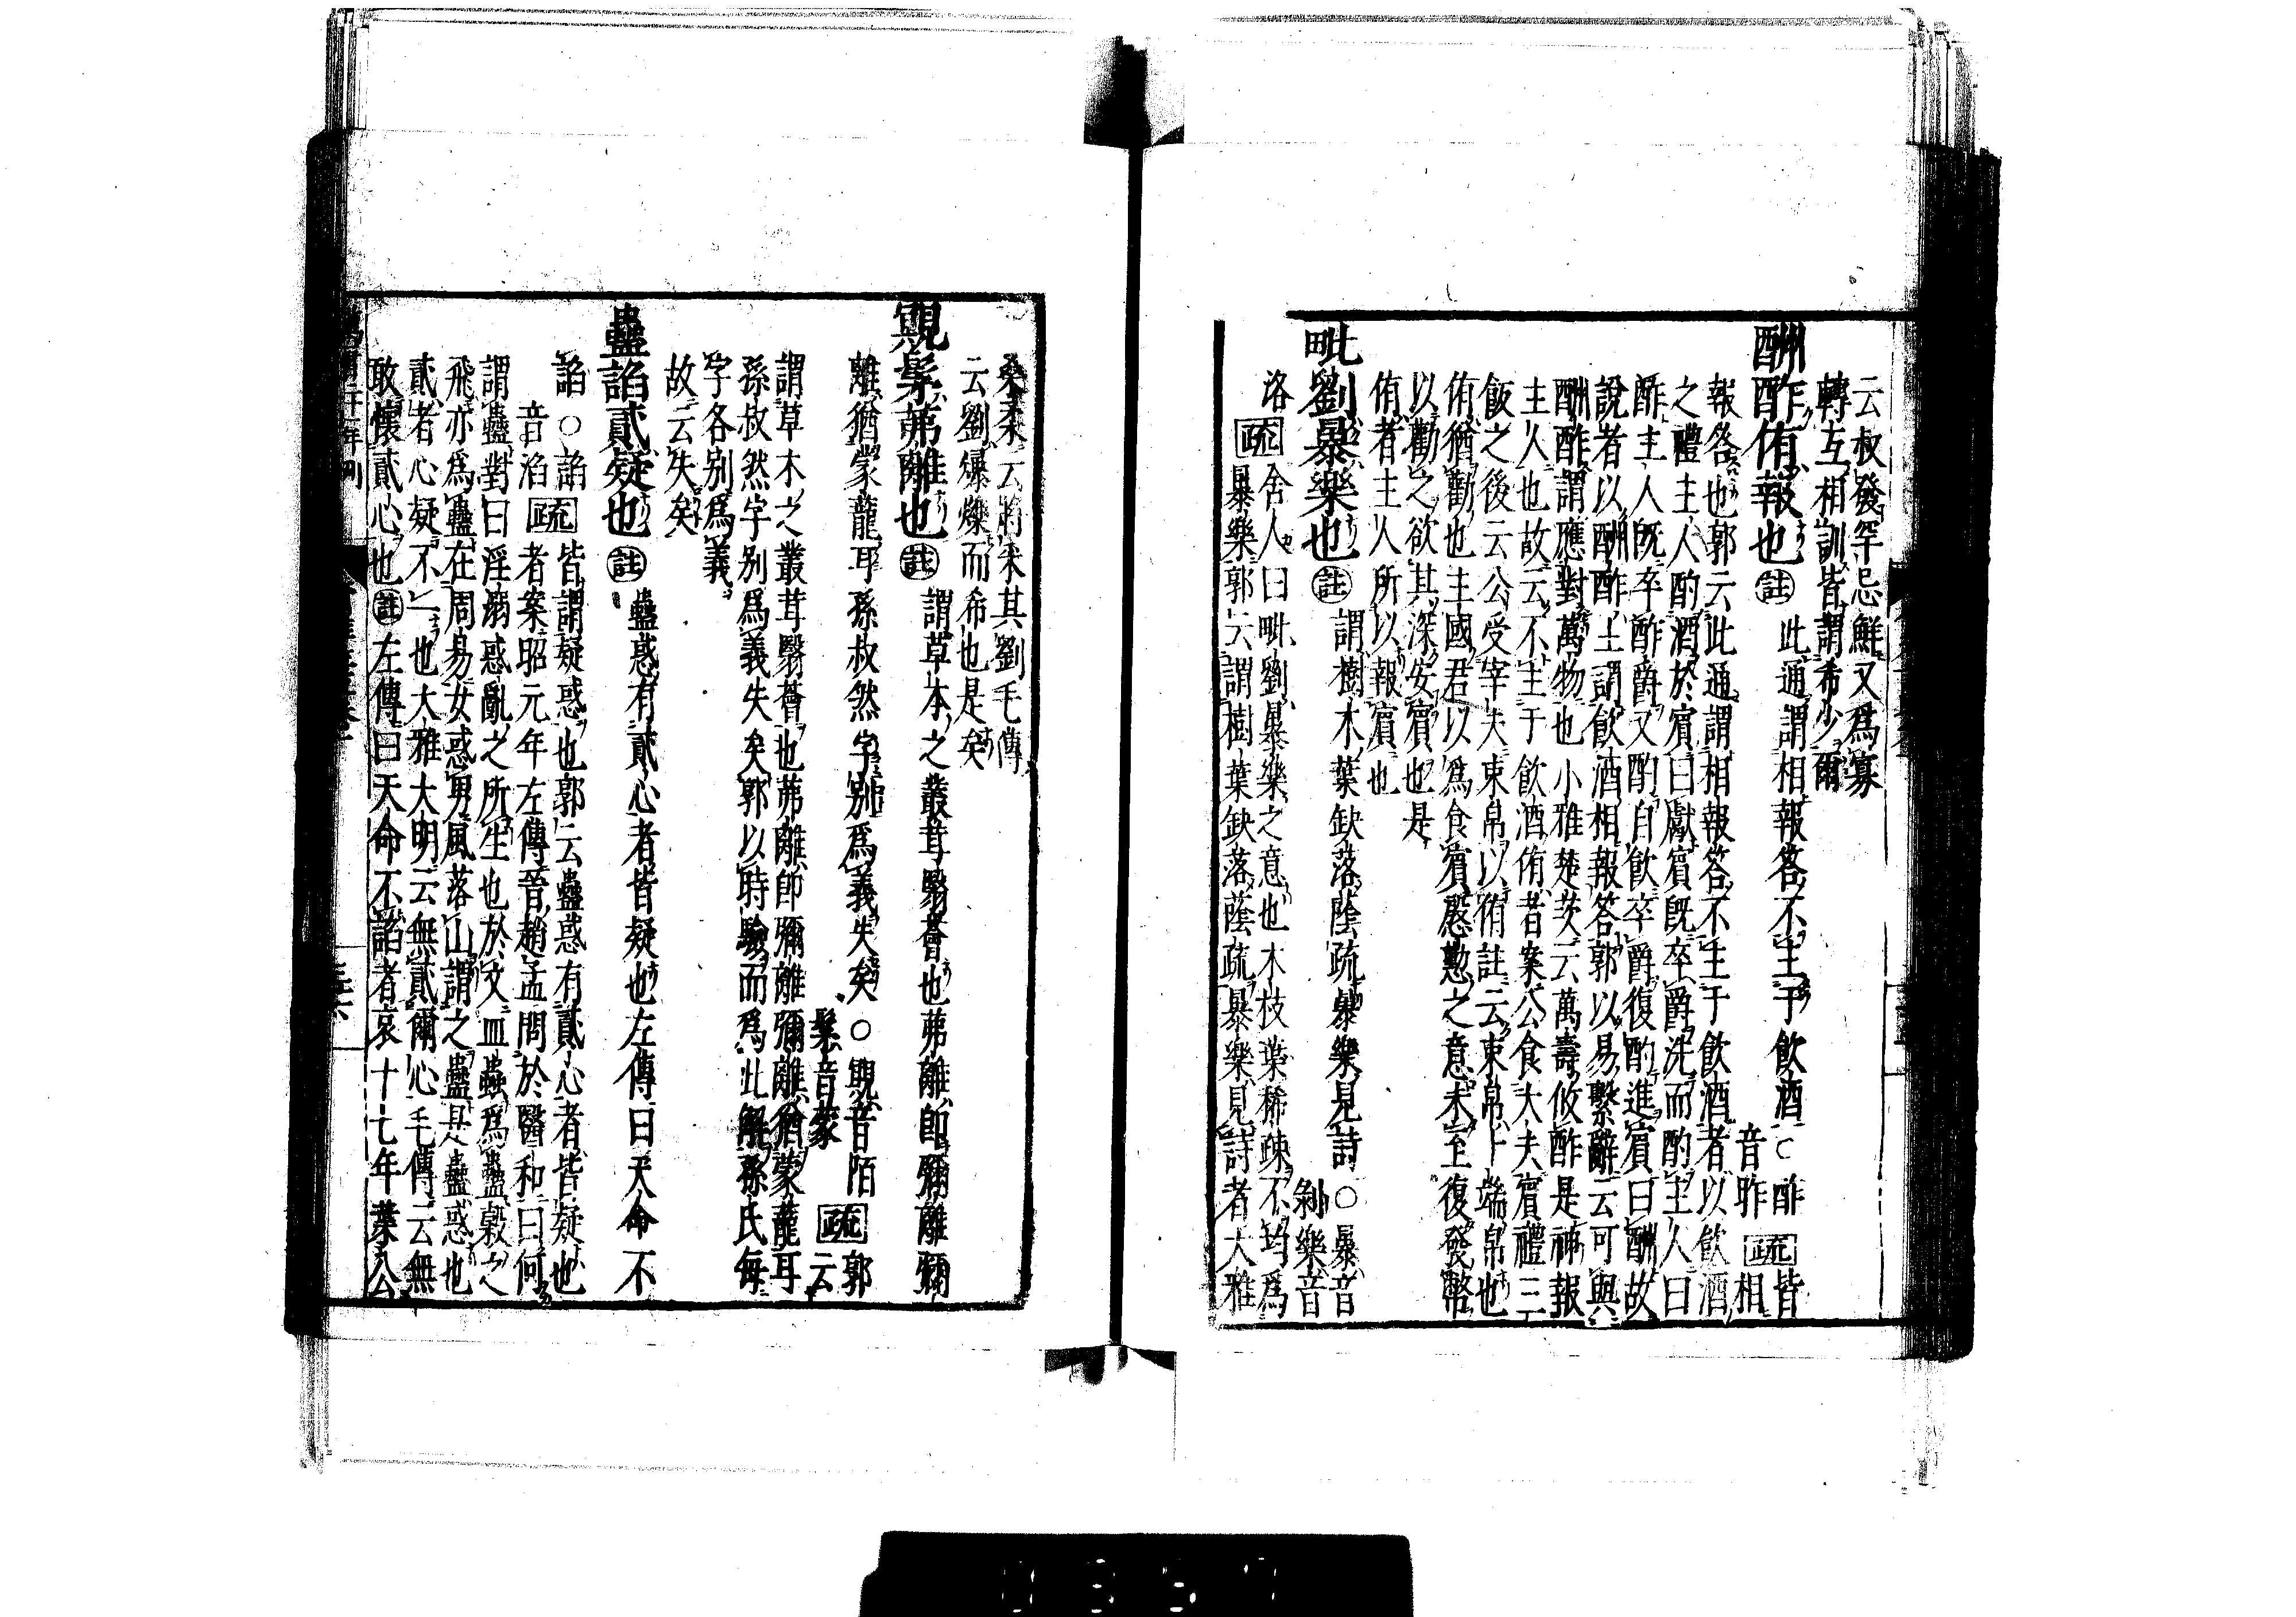 云叔發罕忌鮮又爲寡
轉互相訓皆謂希少爾
酬酢侑報也註此通謂相報答不主于飲酒○酢音昨疏皆相
報答也郭云此通謂相報答不主于飲酒者以飲酒
之禮主人酌酒於賓曰獻賓既卒爵洗而酌主人曰
酢主人既卒酢爵又酌自飲卒爵復酌進賓曰酬故
說者以酬酢主謂飲酒相報答郭以易繫辭云可與
酬酢謂應對萬物也小雅楚茨云萬壽攸酢是神報
主人也故云不主于飲酒侑者案公食大夫賓禮三
飯之後云公受宰夫束帛以侑註云束帛十端帛也
侑猶勸也主國君以爲食賓慇懃之意未至復發幣
以勸之欲其深安賓也是
侑者主人所以報賓也
毗劉暴樂也註謂樹木葉缺落蔭疏暴樂見詩○暴音剝樂音
洛疏舍人曰毗劉暴樂之意也木枝葉稀疎不均爲
暴樂郭云謂樹葉缺落蔭疏暴樂見詩者大雅
桑柔云將采其劉毛傳
云劉爆爍而希也是矣
覭髳茀離也註謂草木之叢茸翳薈也茀離即彌離彌
離猶蒙蘢耳孫叔然字別爲義失矣○覭音陌髳音蒙疏郭云
謂草木之叢茸翳薈也茀離即彌離彌離猶蒙蘢耳
孫叔然字別爲義失矣郭以時驗而爲此解孫氏每
字各別爲義
故云失矣
蠱諂貳疑也註蠱惑有貳心者皆疑也左傳曰天命不
諂○諂音滔疏皆謂疑惑也郭云蠱惑有貳心者皆疑也
者案昭元年左傳晉趙孟問於醫和曰何
謂蠱對曰淫溺惑亂之所生也於文皿蟲爲蠱穀之
飛亦爲蠱在周易女惑男風落山謂之蠱是蠱惑也
貳者心疑不一也大雅大明云無貳爾心毛傳云無
敢懷貳心也註左傳曰天命不諂者哀十七年葉公